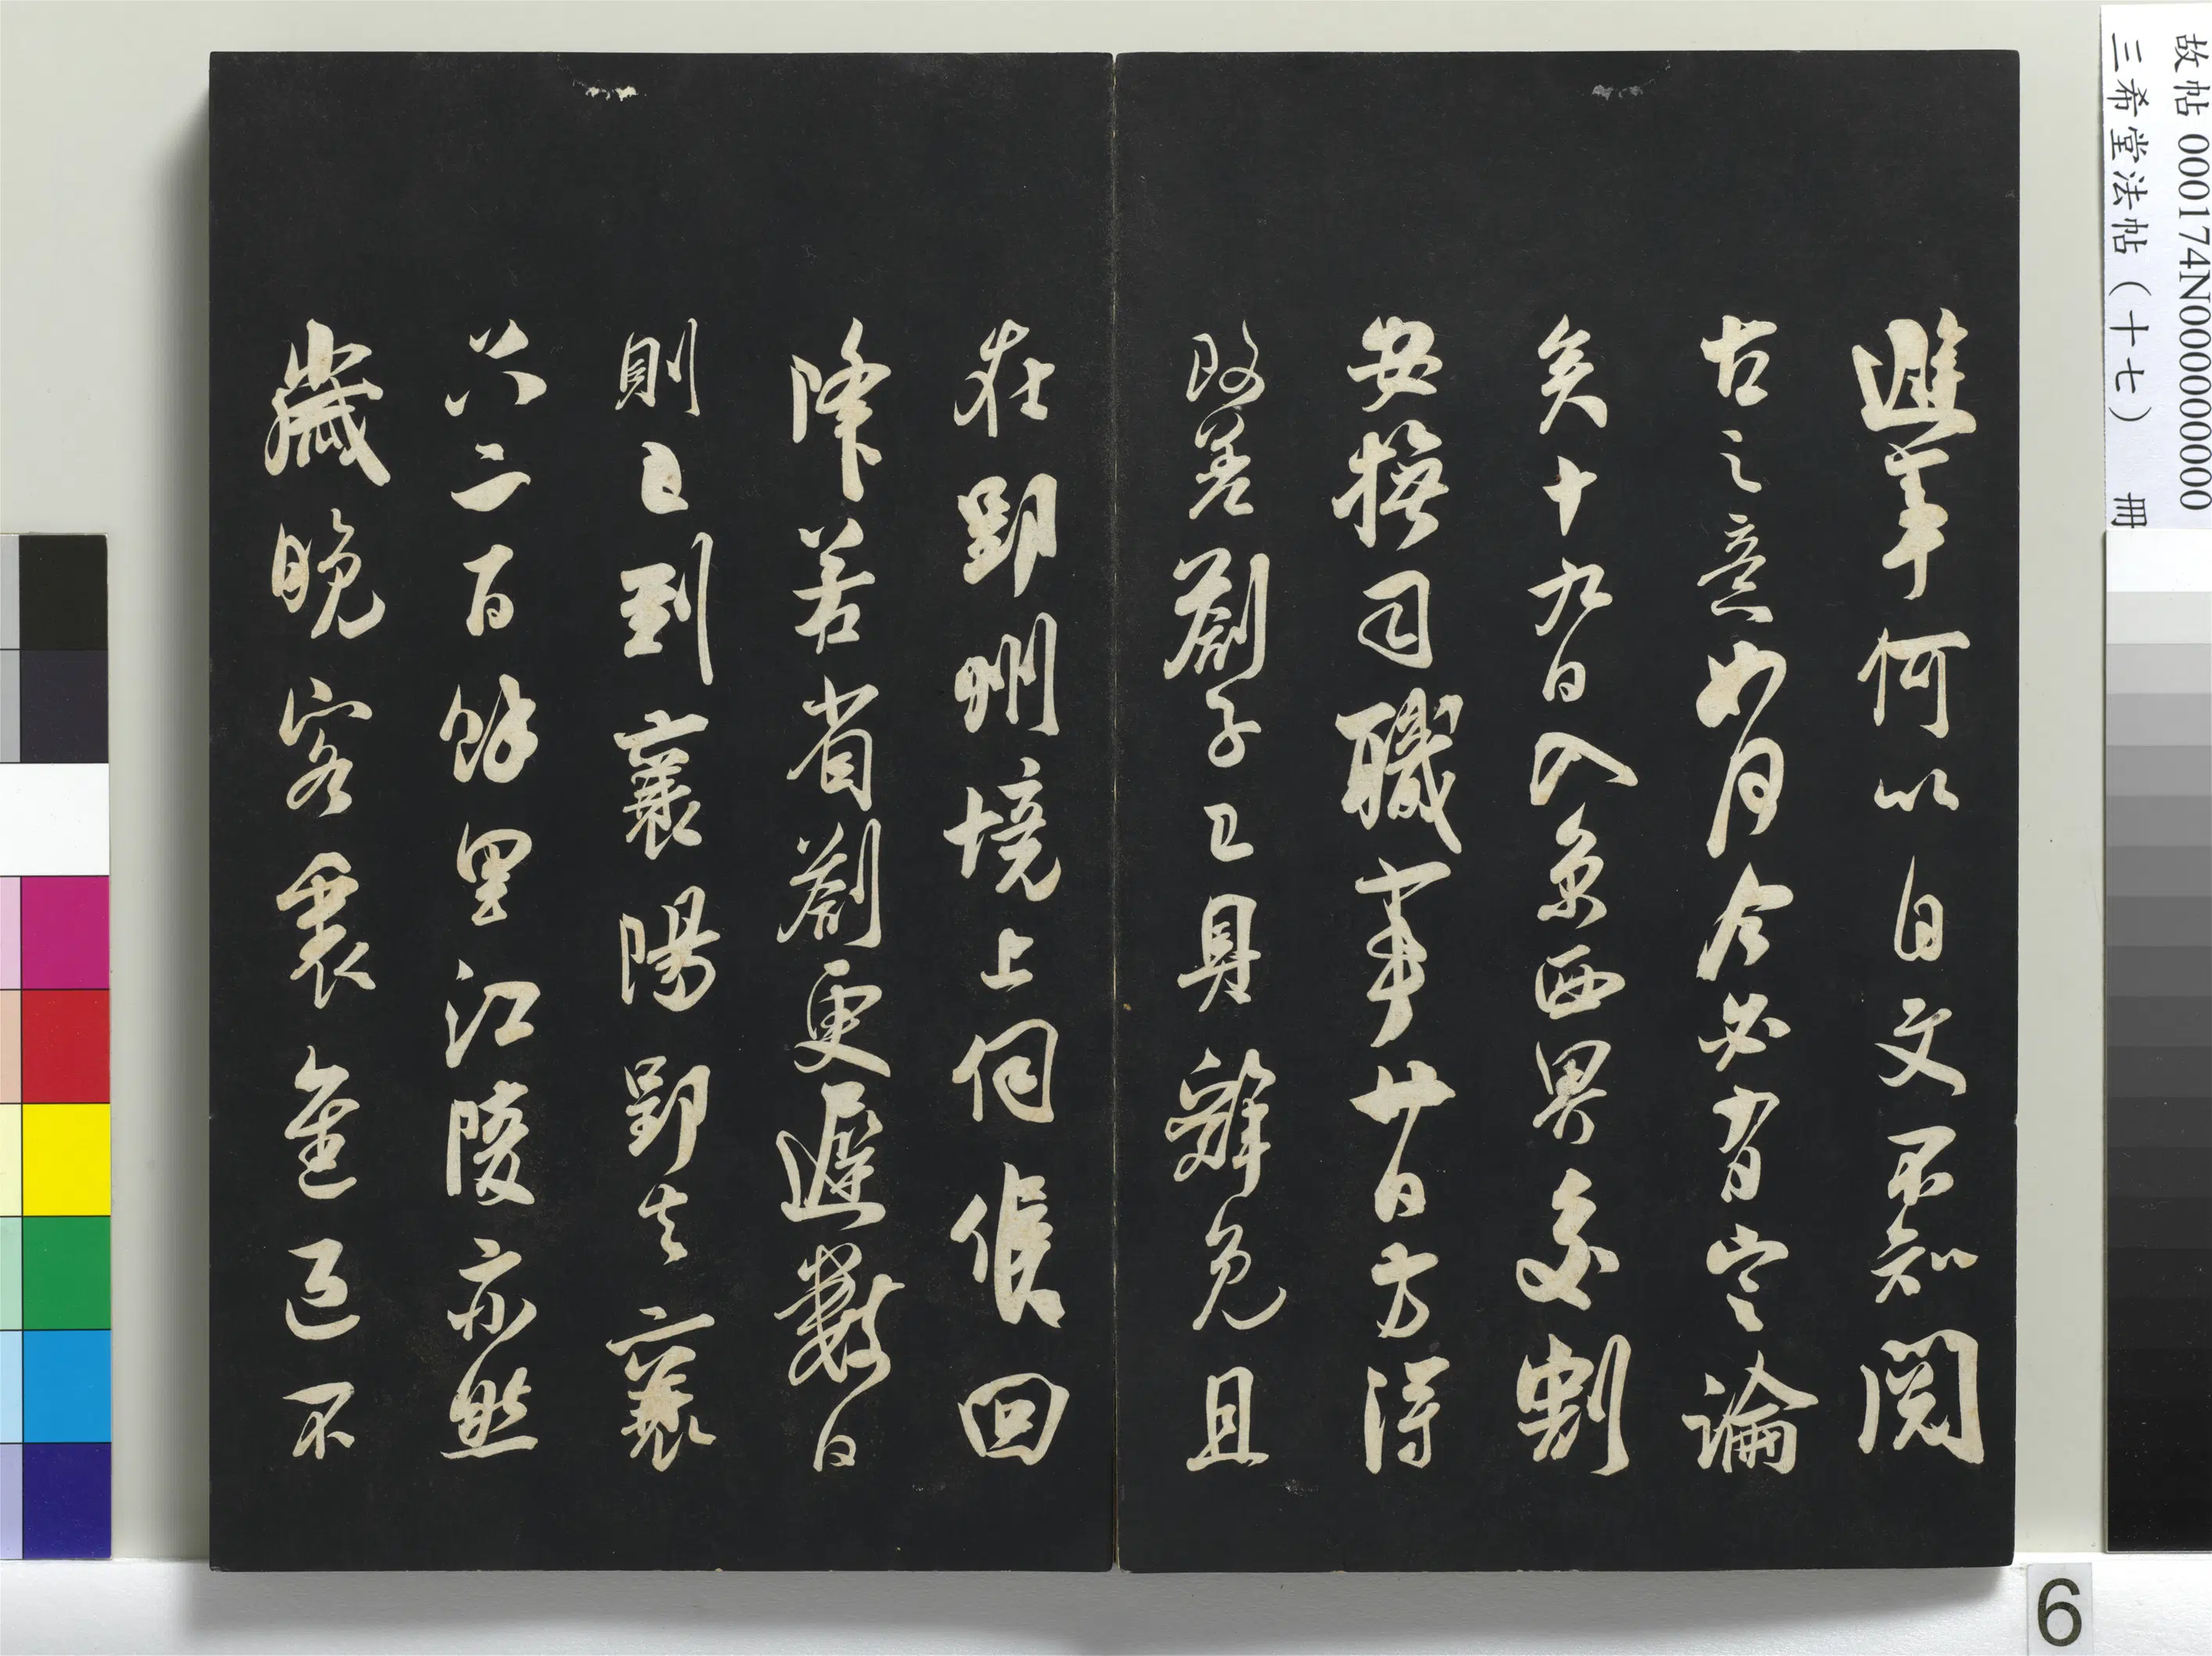 何以自文不知閱
古之意如何今必有定論
矣十九日入京西界交割
安撫司職事廿日方得
改差劄子已具辭免且
在郢州境上伺候回
降若省劄更遲數日
則已到襄陽郢去襄
只二百餘里江陵亦然
歲晚客裏不
故帖 000174N000000000
三希堂法帖（十七） 冊
6